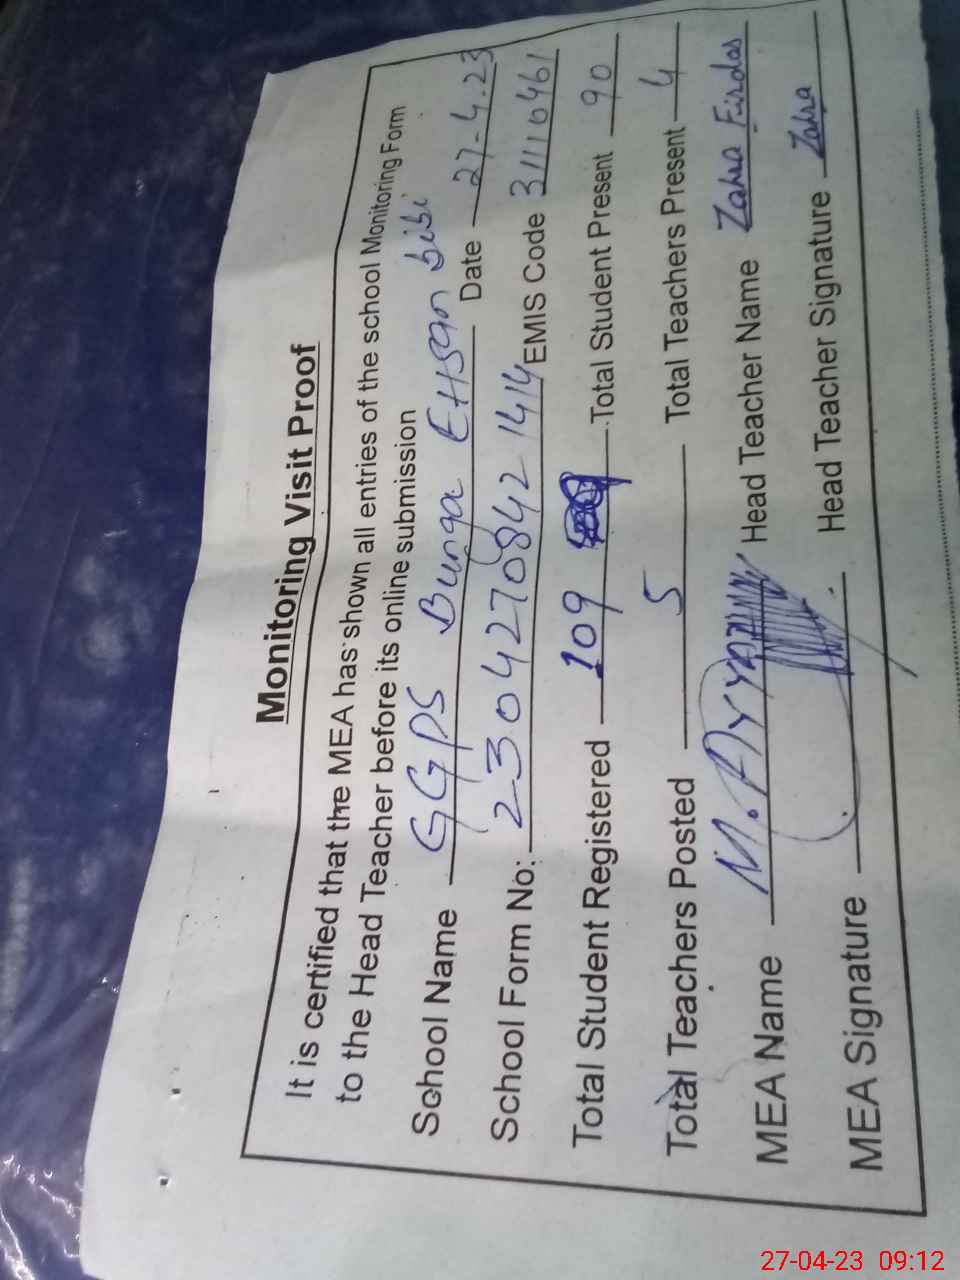 Monitoring Visit Proof
It is certified that the MEA has shown all entries of the school Monitoring Form
to the Head Teacher before its online submission
School Name GGPS Bunga EHSan bibi Date 27-4.23
School Form No: 23042708421414 EMIS Code 31110461
Total Student Registered 109 Total Student Present 90
Total Teachers Posted 5 Total Teachers Present 4
MEA Name M. Head Teacher Name Zahra Firdos
MEA Signature Head Teacher Signature Zahra
27-04-23 09:12